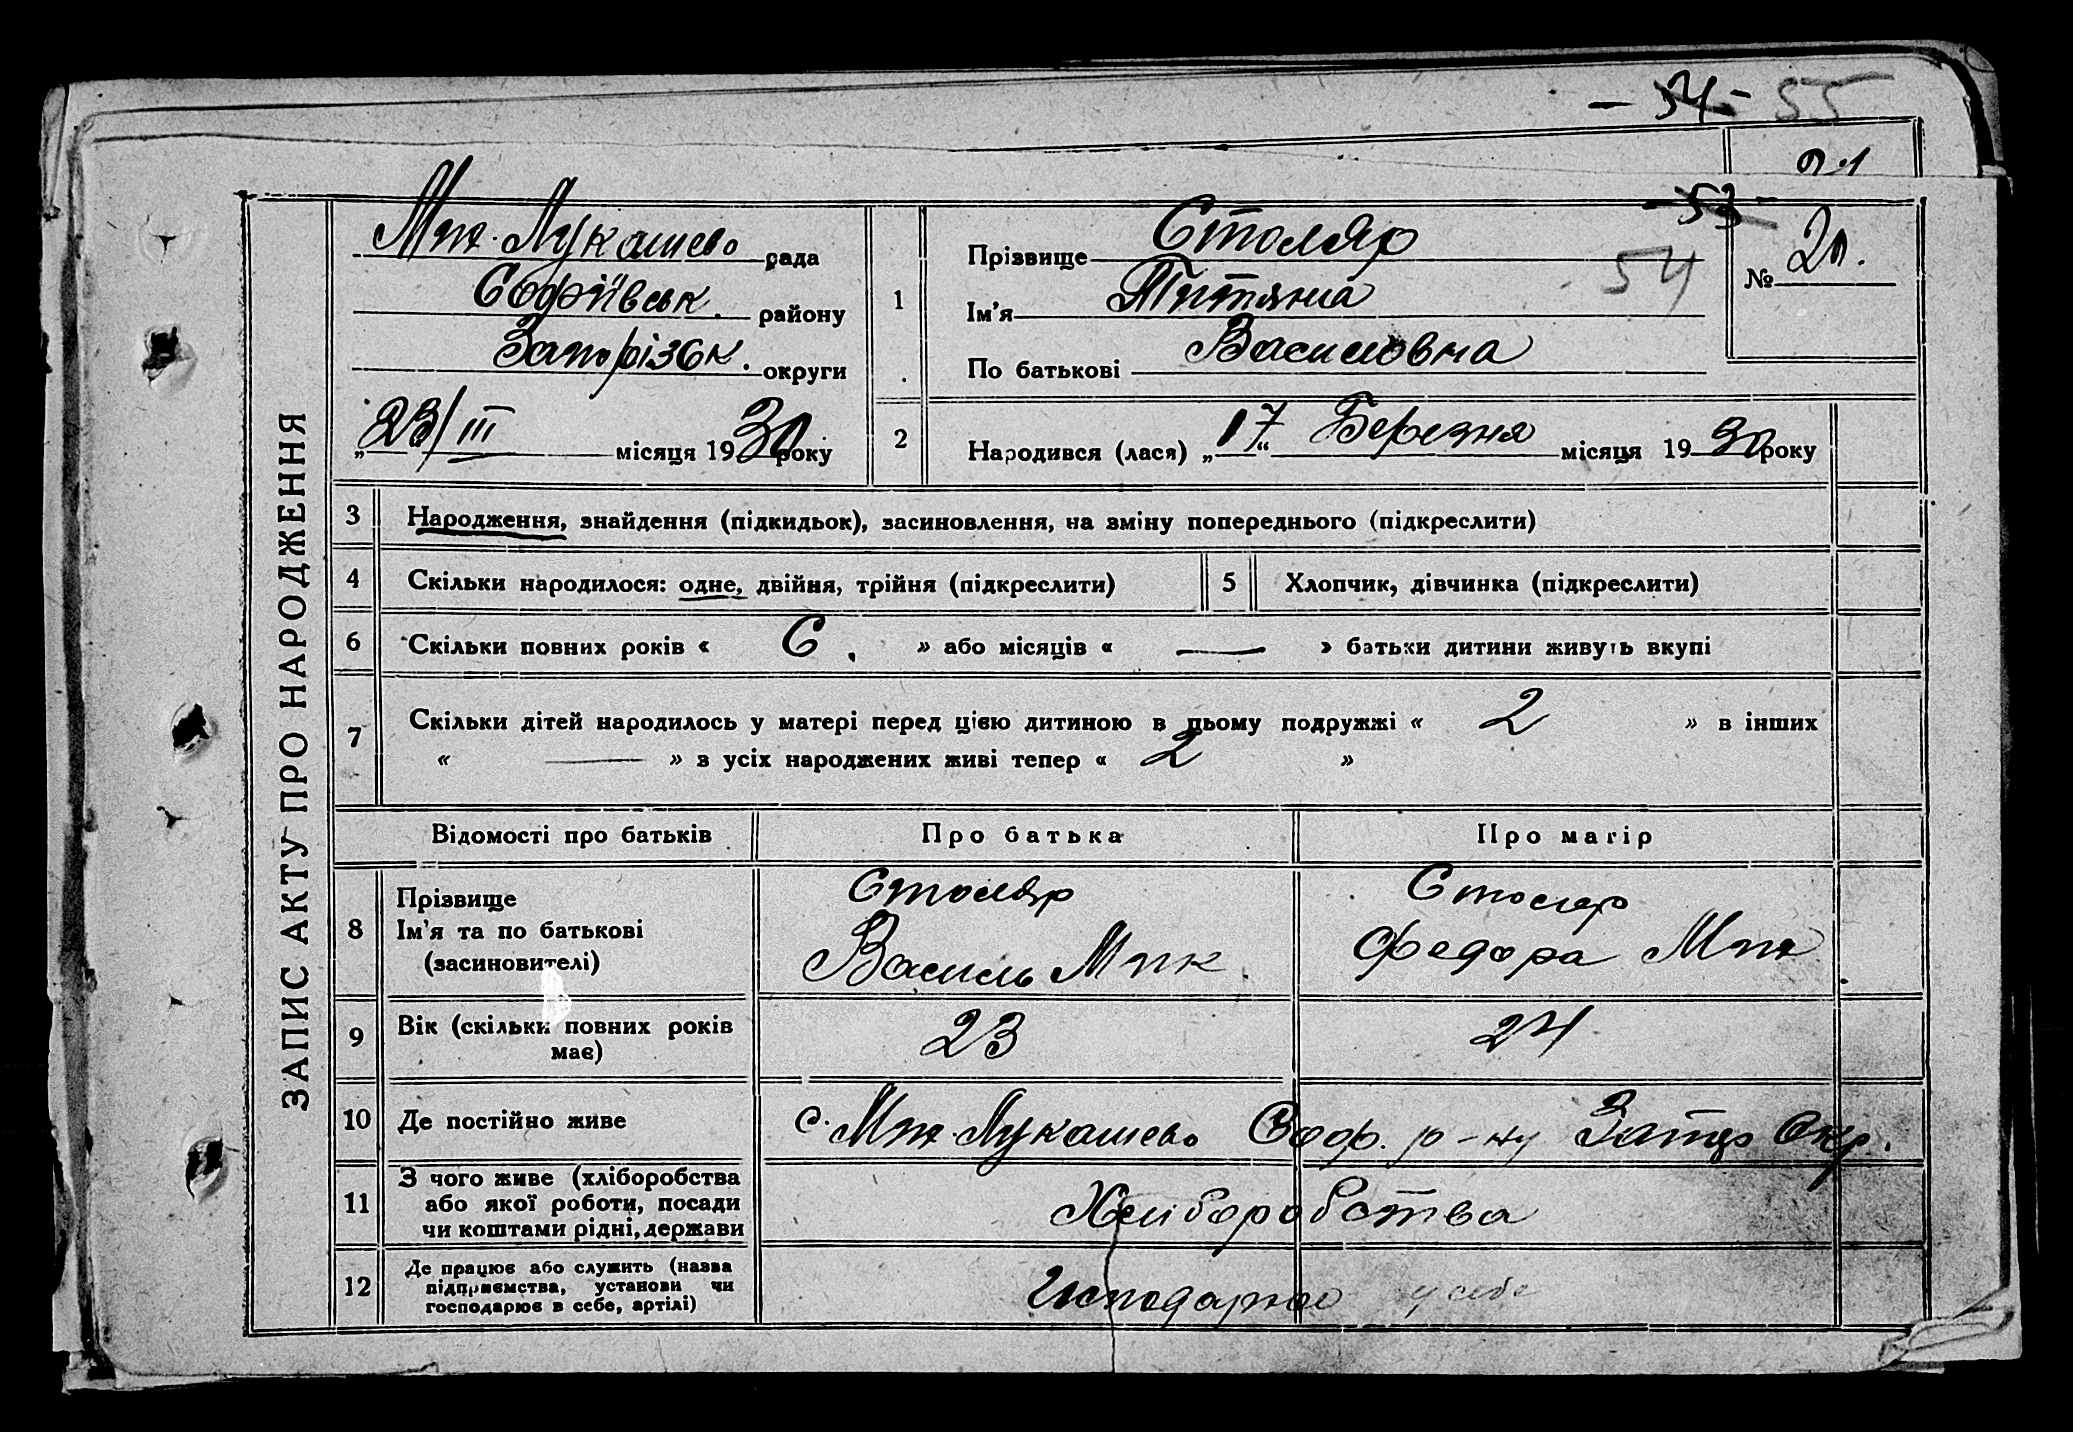 - 54 - 55
21
- 53 -
ЗАПИС АКТУ ПРО НАРОДЖЕННЯ
Мик. Лукашево рада
Софіївськ. району
Запорізьк. округи
„23/III місяця 1930 року
1 Прізвище Столяр
Ім'я Титяна
По батькові Василовна
54
№ 20.
2 Народився (лася) „17“ Березня місяця 1930 року
3 Народження, знайдення (підкидьок), засиновлення, на зміну попереднього (підкреслити)
4 Скільки народилося: одне, двійня, трійня (підкреслити) 5 Хлопчик, дівчинка (підкреслити)
6 Скільки повних років « 6. » або місяців « — » батьки дитини живуть вкупі
7 Скільки дітей народилось у матері перед цією дитиною в цьому подружжі « 2 » в інших
« — » з усіх народжених живі тепер « 2 »
Відомості про батьків Про батька Про матір
8 Прізвище Столяр Столяр
Ім'я та по батькові Василь Мик Федора Мик
(засиновителі)
9 Вік (скільки повних років 23 24
має)
10 Де постійно живе с. Мик. Лукашево Соф. р-ну Запор Окр.
11 З чого живе (хліборобства
або якої роботи, посади Хліборобства
чи коштами рідні, держави
12 Де працює або служить (назва
підприємства, установи чи
господарює в себе, артілі) Господарює у себе